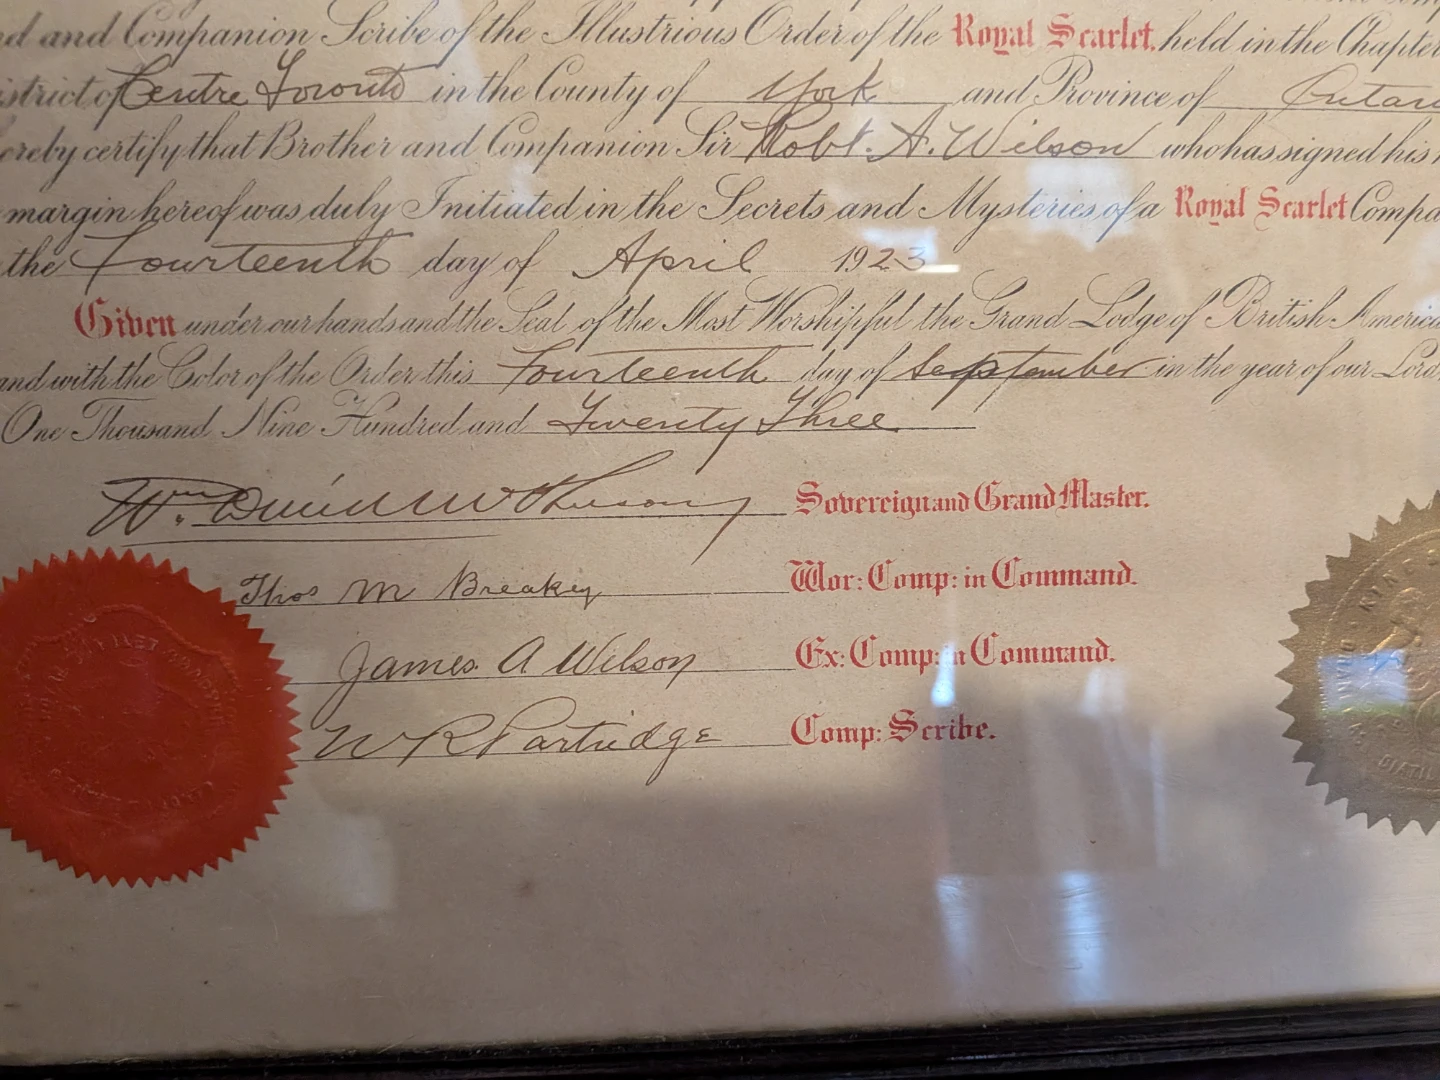 and Companion Scribe of the Illustrious Order of the Royal Scarlet, held in the Chapter
Centre Toronto in the County of York and Province of
certify that Brother and Companion Sir Robt. A. Wilson who has signed his
margin hereof was duly Initiated in the Secrets and Mysteries, of a Royal Scarlet
the Fourteenth day of April 1923
Given under our hands and the Seal of the Most Worshipful the Grand Lodge of British
and with the Color of the Order this Fourteenth day of September in the year of our Lord,
One Thousand Nine Hundred and Twenty Three
Wm. Sovereign and Grand Master.
Thos M Breakey Wor: Comp: in Command.
James A Wilson Ex: Comp: in Command.
W R Partridge Comp: Scribe.